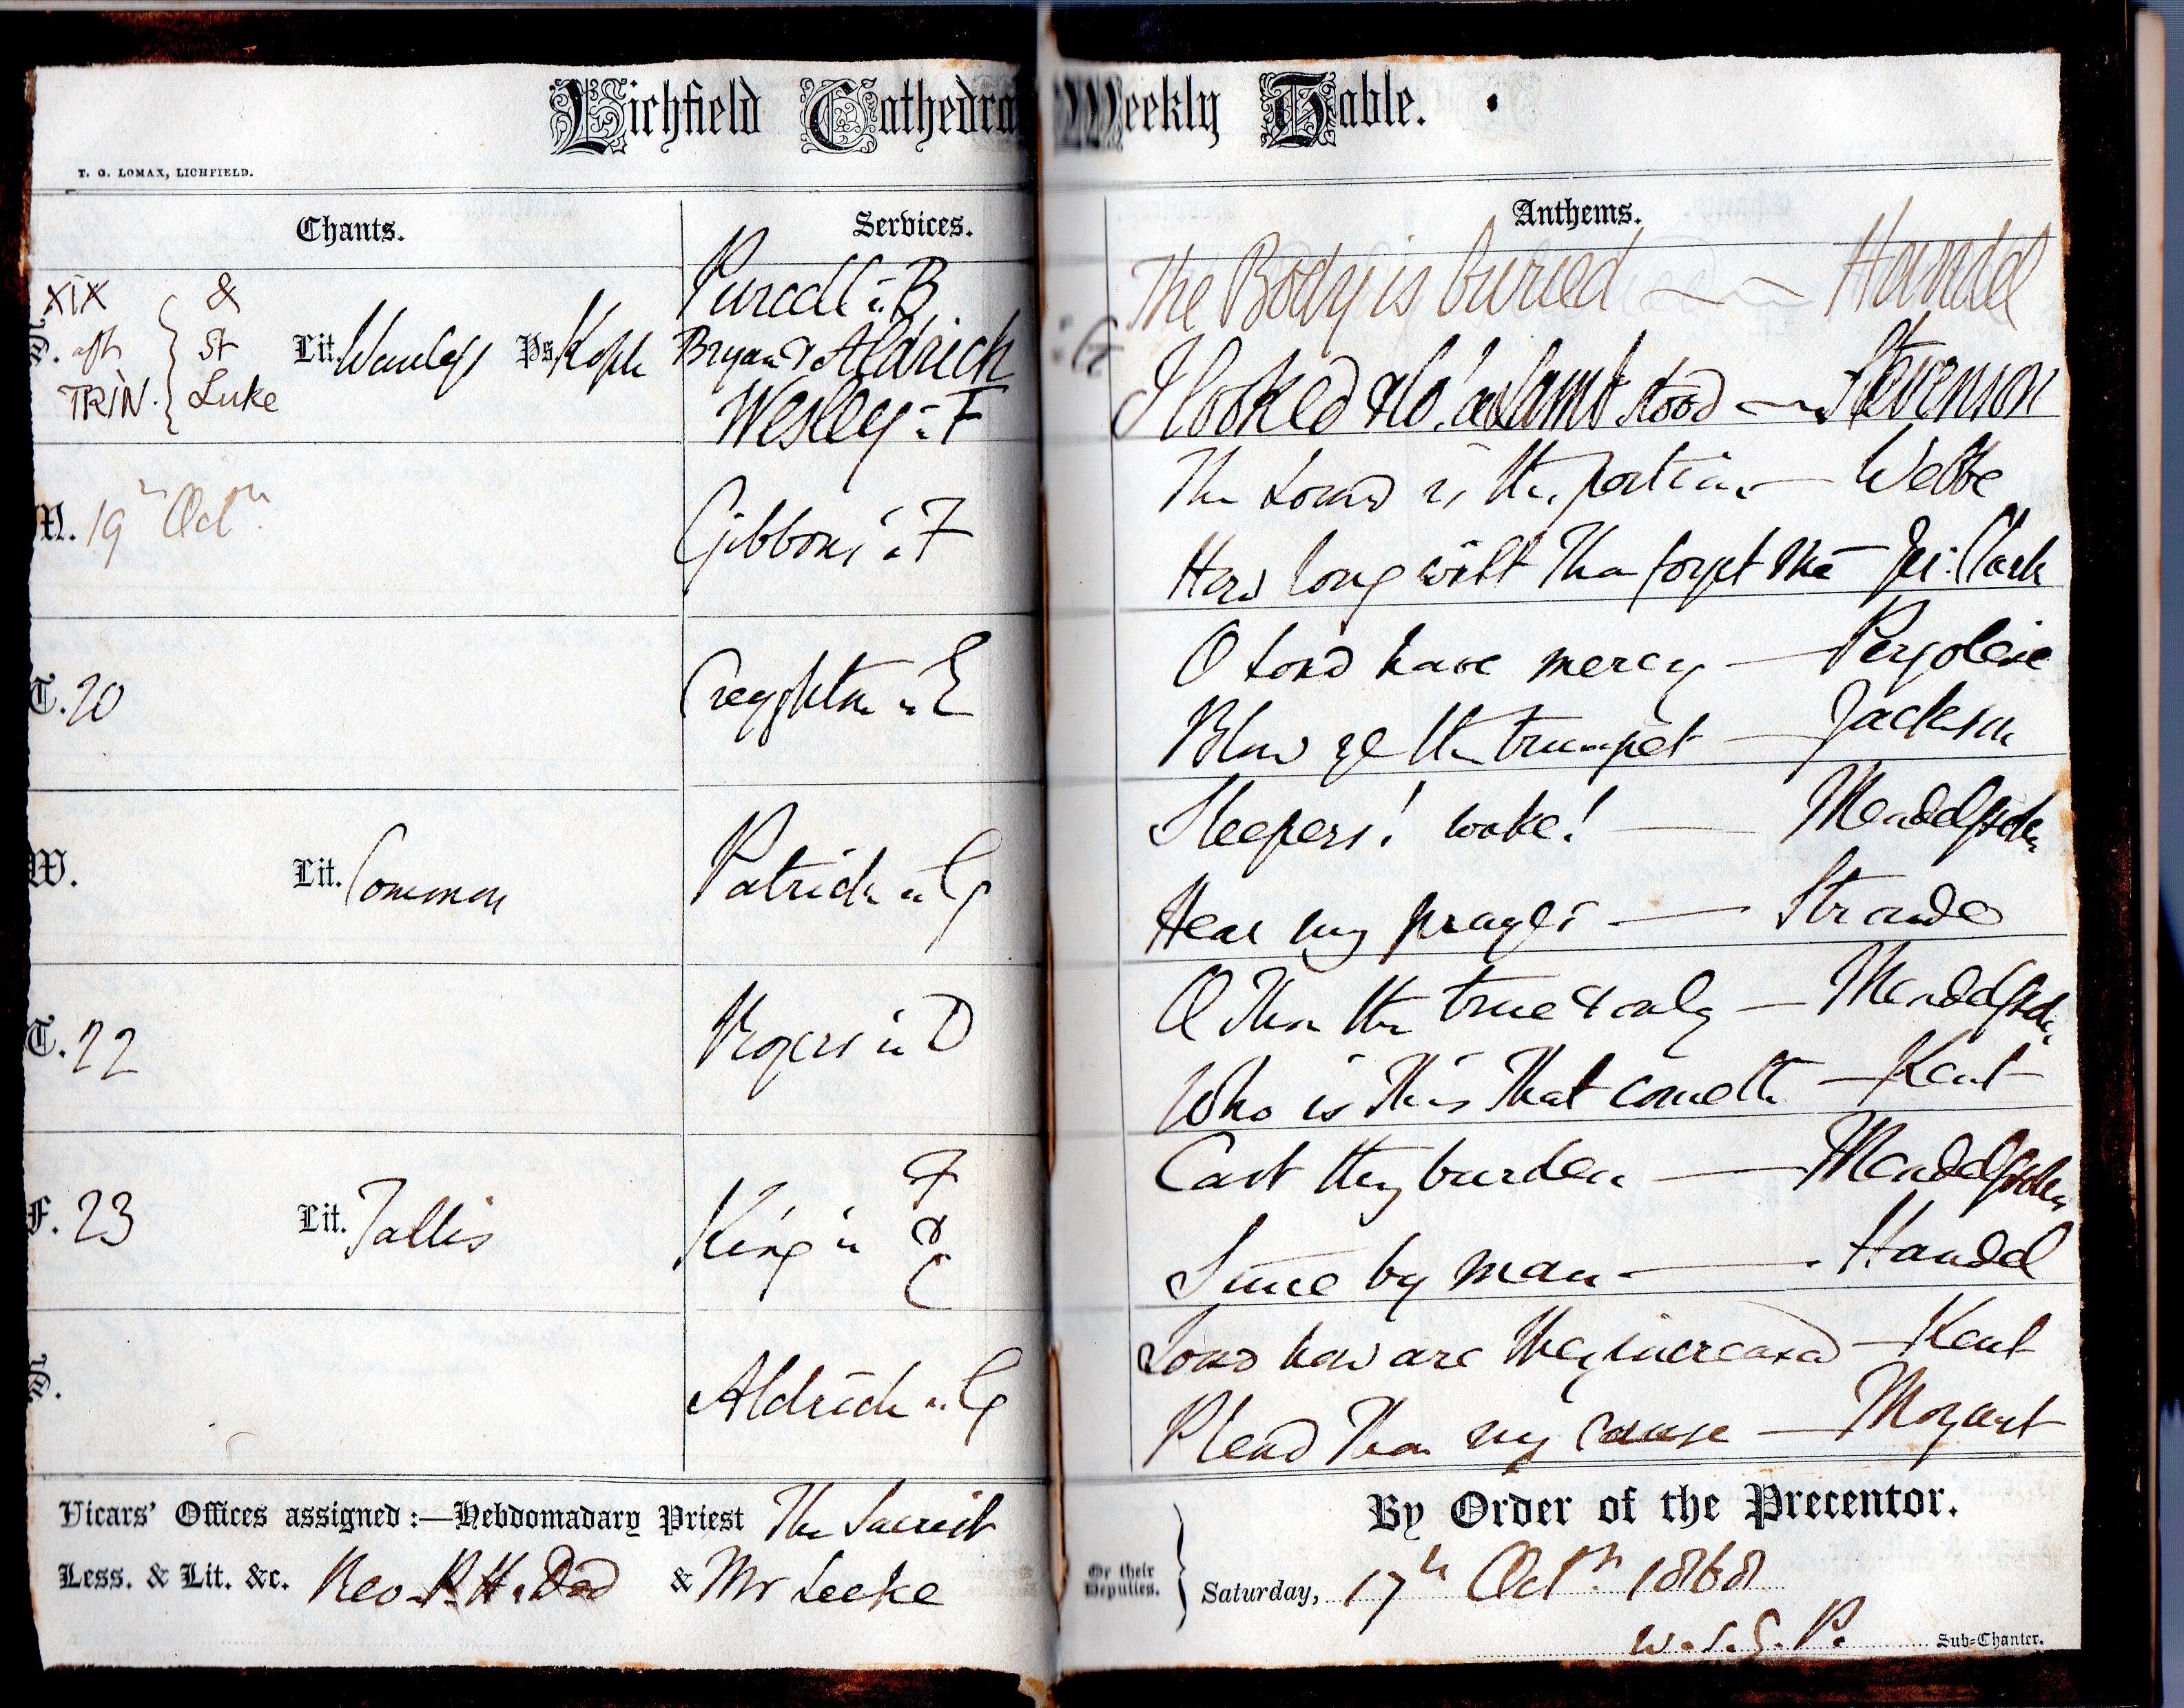 Lichfield Cathedral Weekly Table.
T. G. LOMAX, LICHFIELD.
Chants. Services. Anthems.
Purcell in B The Body is buried — Handel
S. XIX aft TRIN. & St Luke Lit. Ps. Bryan & Aldrich in G I looked & lo! a Lamb stood — Stevenson
Wesley in F
The Lord is the portion — Webbe
M. 19th Octr. Gibbons in F
How long wilt Thou forget me — Jer: Clark
O Lord have mercy — Pergolesi
T. 20 Creyghton in E
Blow ye the trumpet — Jackson
Sleepers! wake! — Mendelssohn
W. Lit. Common Patrick in G
Hear my prayer — Stroud
O Thou the true & only — Mendelssohn
T. 22 Rogers in D
Who is this that cometh — Kent
Cast thy burden — Mendelssohn
F. 23 Lit. Tallis King in F & C
Since by man — Handel
Lord how are they increased — Kent
S. Aldrich in G
Plead Thou my cause — Mozart
Vicars' Offices assigned :—Hebdomadary Priest The Sacrist
Less. & Lit. &c. Rev. R. H. Dod & Mr Leeke
By Order of the Precentor.
Or their Deputies. } Saturday, 17th Octr. 1868
W. S. G. P. Sub-Chanter.